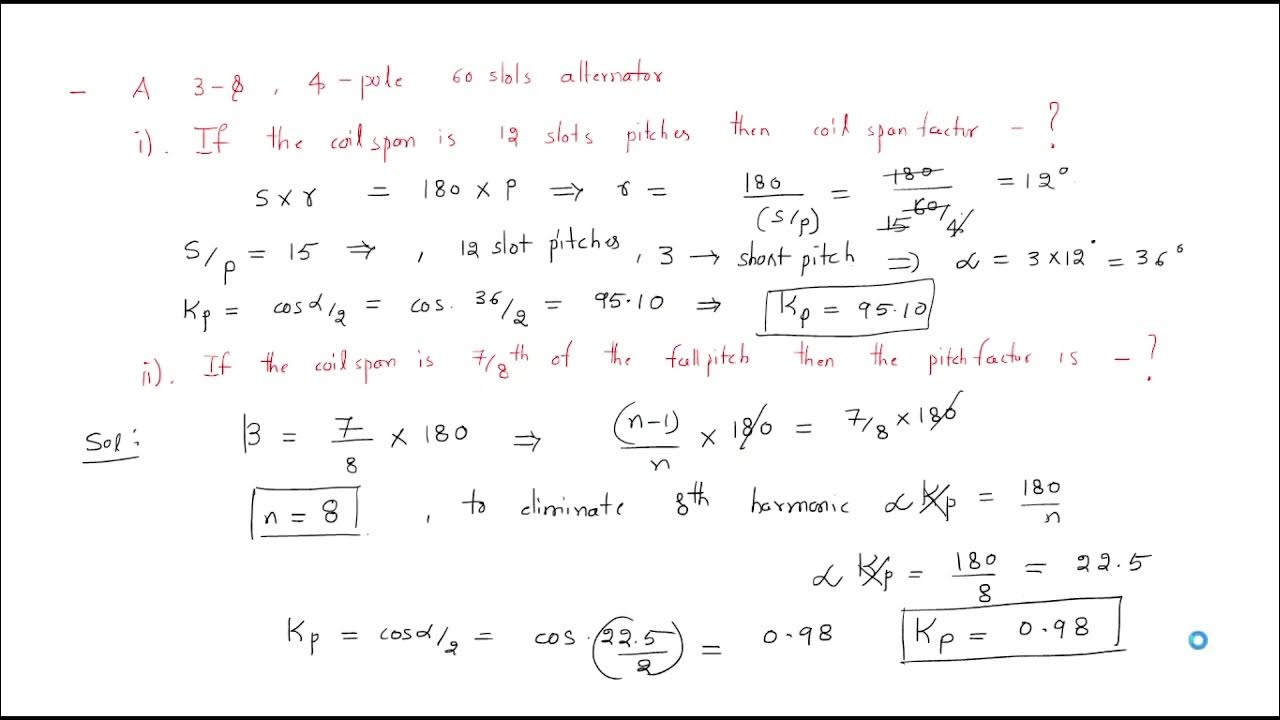 - A 3-φ, 4-pole 60 slots alternator
i). If the coil span is 12 slots pitches then coil span factor - ?
S x γ = 180 x P ⇒ γ = 180/(S/P) = 180/(60/4) 15 = 12°
S/P = 15 ⇒ , 12 slot pitches, 3 → short pitch ⇒) α = 3 x 12° = 36°
Kp = cos α/2 = cos. 36/2 = 95.10 ⇒ Kp = 95.10
ii). If the coil span is 7/8th of the full pitch then the pitch factor is - ?
Sol: β = 7/8 x 180 ⇒ (n-1)/n x 180 = 7/8 x 180
n = 8 , to eliminate 8th harmonic α Kp = 180/n
α Kp = 180/8 = 22.5
Kp = cos α/2 = cos. 22.5/2 = 0.98 Kp = 0.98